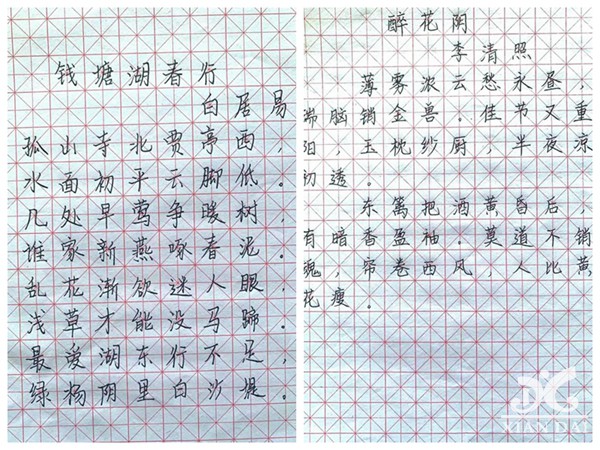 钱塘湖春行
白居易
孤山寺北贾亭西，
水面初平云脚低。
几处早莺争暖树，
谁家新燕啄春泥。
乱花渐欲迷人眼，
浅草才能没马蹄。
最爱湖东行不足，
绿杨阴里白沙堤。
醉花阴
李清照
薄雾浓云愁永昼，
瑞脑销金兽。佳节又重
阳，玉枕纱厨，半夜凉
初透。
东篱把酒黄昏后，
有暗香盈袖。莫道不销
魂，帘卷西风，人比黄
花瘦。
XIAN DAI